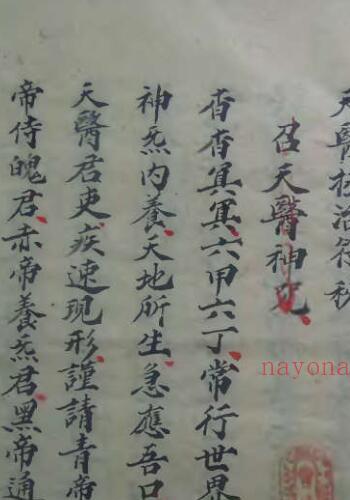 天醫扶治符秘
召天醫神咒
杳杳冥冥六甲六丁常行世界
神炁内養天地所生急應吾口
天醫君吏疾速現形謹請青帝
帝侍魄君赤帝養炁君黑帝通
nayona